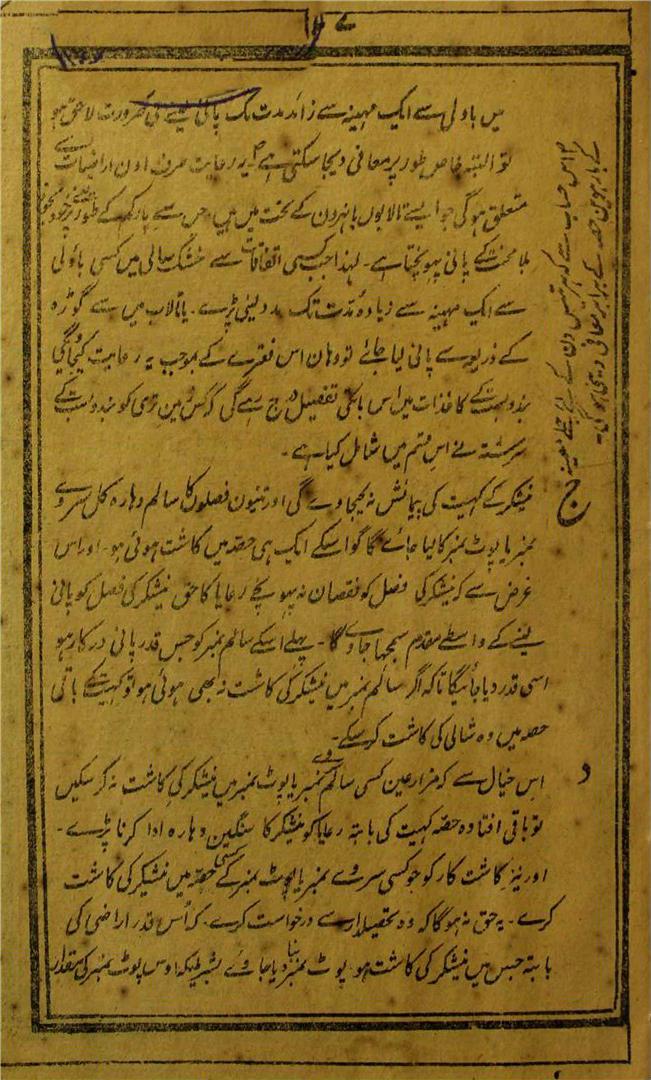 میں باولی سے ایک مہینہ سے زائد مدت تک پانی لینے کی ضرورت لاحق ہو
تو البتہ خاص طور پر معافی دیجا سکتی ہے یہ رعایت صرف اون اراضیات سے
متعلق ہوگی جو ایسے تالابوں یا نہرون کے تحت میں ہیں جس سے بارکم کے طور پر خود بخود
بلا محنت کے پانی پہونچتا ہے۔ لہذا جب کسی اتفاقات سے خشک سالی میں کسی باؤلی
سے ایک مہینہ سے زیادہ مدت تک مدد لینی پڑے۔ یا تالاب میں سے گوڑہ
کے ذریعہ سے پانی لیا جائے تو وہان اس فقرے کے بموجب یہ رعایت کیجائیگی
بندوبست کے کاغذات میں اس بات کی تفصیل درج رہے گی کہ کس زمین تری کو بندوبست کے
سررشتہ نے اس قسم میں شامل کیا ہے۔
ج
نیشکر کے کھیت کی پیمائش نہ کیجاوے گی اور تینوں فصلوں کا سالم دہارہ کل سروے
نمبر یا پوٹ نمبر کا لیا جائے گا گو اسکے ایک ہی حصہ میں کاشت ہوئی ہو۔ اور اس
غرض سے کہ نیشکر کی فصل کو نقصان نہ پہونچے رعایا کا حق نیشکر کی فصل کو پانی
لینے کے واسطے مقدم سمجھا جاوے گا۔ پہلے اسکے سالم نمبر کو جس قدر پانی درکار ہو
اسی قدر دیا جائیگا تاکہ اگر سالم نمبر میں نیشکر کی کاشت نہ بھی ہوئی ہو تو کھیت کے باقی
حصہ میں وہ شالی کی کاشت کر سکے۔
د
اس خیال سے کہ مزارعین کسی سالم سروے نمبر یا پوٹ نمبر میں نیشکر کی کاشت نہ کرسکیں
تو باقی افتادہ حصہ کھیت کی بابتہ رعایا کو نیشکر کا سنگین دہارہ ادا کرنا پڑے۔
اور نیز کاشت کار کو جو کسی سروے نمبر یا پوٹ نمبر کے کسی حصہ میں نیشکر کی کاشت
کرے۔ یہ حق نہ ہوگا کہ وہ تحصیلدار سے درخواست کرے۔ کہ اُس قدر اراضی کی
بابتہ جس میں نیشکر کی کاشت ہو پوٹ نمبر بنا دیا جاوے بشرطیکہ اوس پوٹ نمبر کی مقدار
اس حساب سے کہ ہر تیس دن کے لئے جملے معینہ
کے بارہویں حصہ کے برابر معافی دینی ہوگی۔